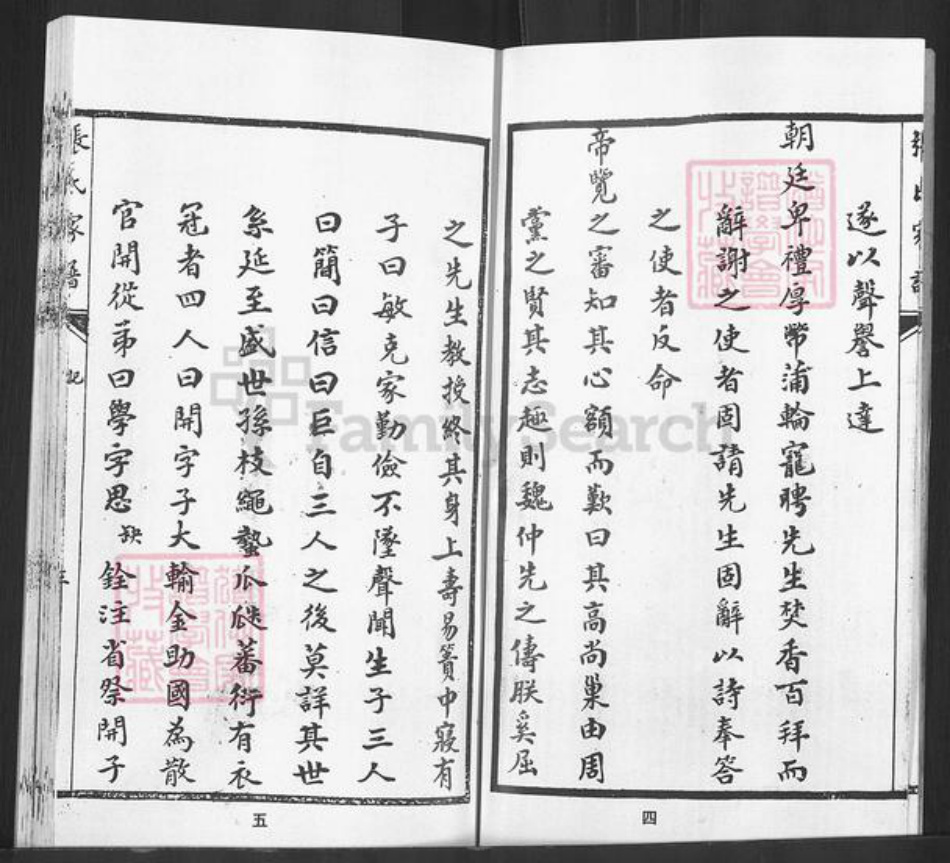 遂以聲譽上達
朝廷卑禮厚幣蒲輪寵聘先生焚香百拜而
辭謝之使者固請先生固辭以詩奉答
之使者反命
帝覽之審知其心額而歎曰其高尚巢由周
黨之賢其志趣則魏仲先之儔朕奚屈
四
之先生教授終其身上壽易簀中寢有
子曰敏克家勤儉不墜聲聞生子三人
曰簡曰信曰巨自三人之後莫詳其世
系延至盛世孫枝繩蟄瓜瓞蕃衍有衣
冠者四人曰開字子大輸金助國為散
官開從弟曰學字思 缺 銓注省祭開子
張氏家譜
記
五
FamilySearch